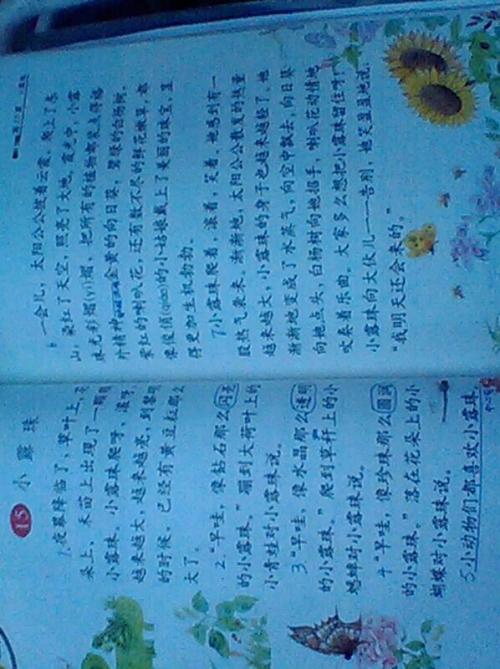 15 小露珠
1 夜幕降临了,草叶上,花
朵上,禾苗上出现了一颗颗
小露珠。小露珠爬呀,滚呀,
越来越大,越来越亮,到黎明
的时候,已经有黄豆粒那么
大了。
2 “早哇,像钻石那么闪亮
的小露珠。”蹦到大荷叶上的
小青蛙对小露珠说。
3 “早哇,像水晶那么透明
的小露珠。”爬到草秆上的小
蟋蟀对小露珠说。
4 “早哇,像珍珠那么圆润
的小露珠。”落在花朵上的小
蝴蝶对小露珠说。
5 小动物们都喜欢小露珠。
6 一会儿,太阳公公披着云裳,爬上了东
山,染红了天空,照亮了大地。霞光中,小露
珠光彩熠(yì)熠,把所有的植物都装点得格
外精神。金黄的向日葵,碧绿的白杨树,
紫红的喇叭花,还有数不尽的鲜花嫩草,都
像俊俏(qiào)的小姑娘戴上了美丽的珠宝,显
得更加生机勃勃。
7 小露珠爬着,滚着,笑着,她感到有一
股热气袭来。渐渐地,太阳公公散发的热量
越来越大,小露珠的身子也越来越轻了。她
渐渐地变成了水蒸气,向空中飘去,向日葵
向她点头,白杨树向她招手,喇叭花动情地
吹奏着乐曲。大家多么想把小露珠留住呀!
小露珠向大伙儿一一告别,她笑盈盈地说:
“我明天还会来的。”